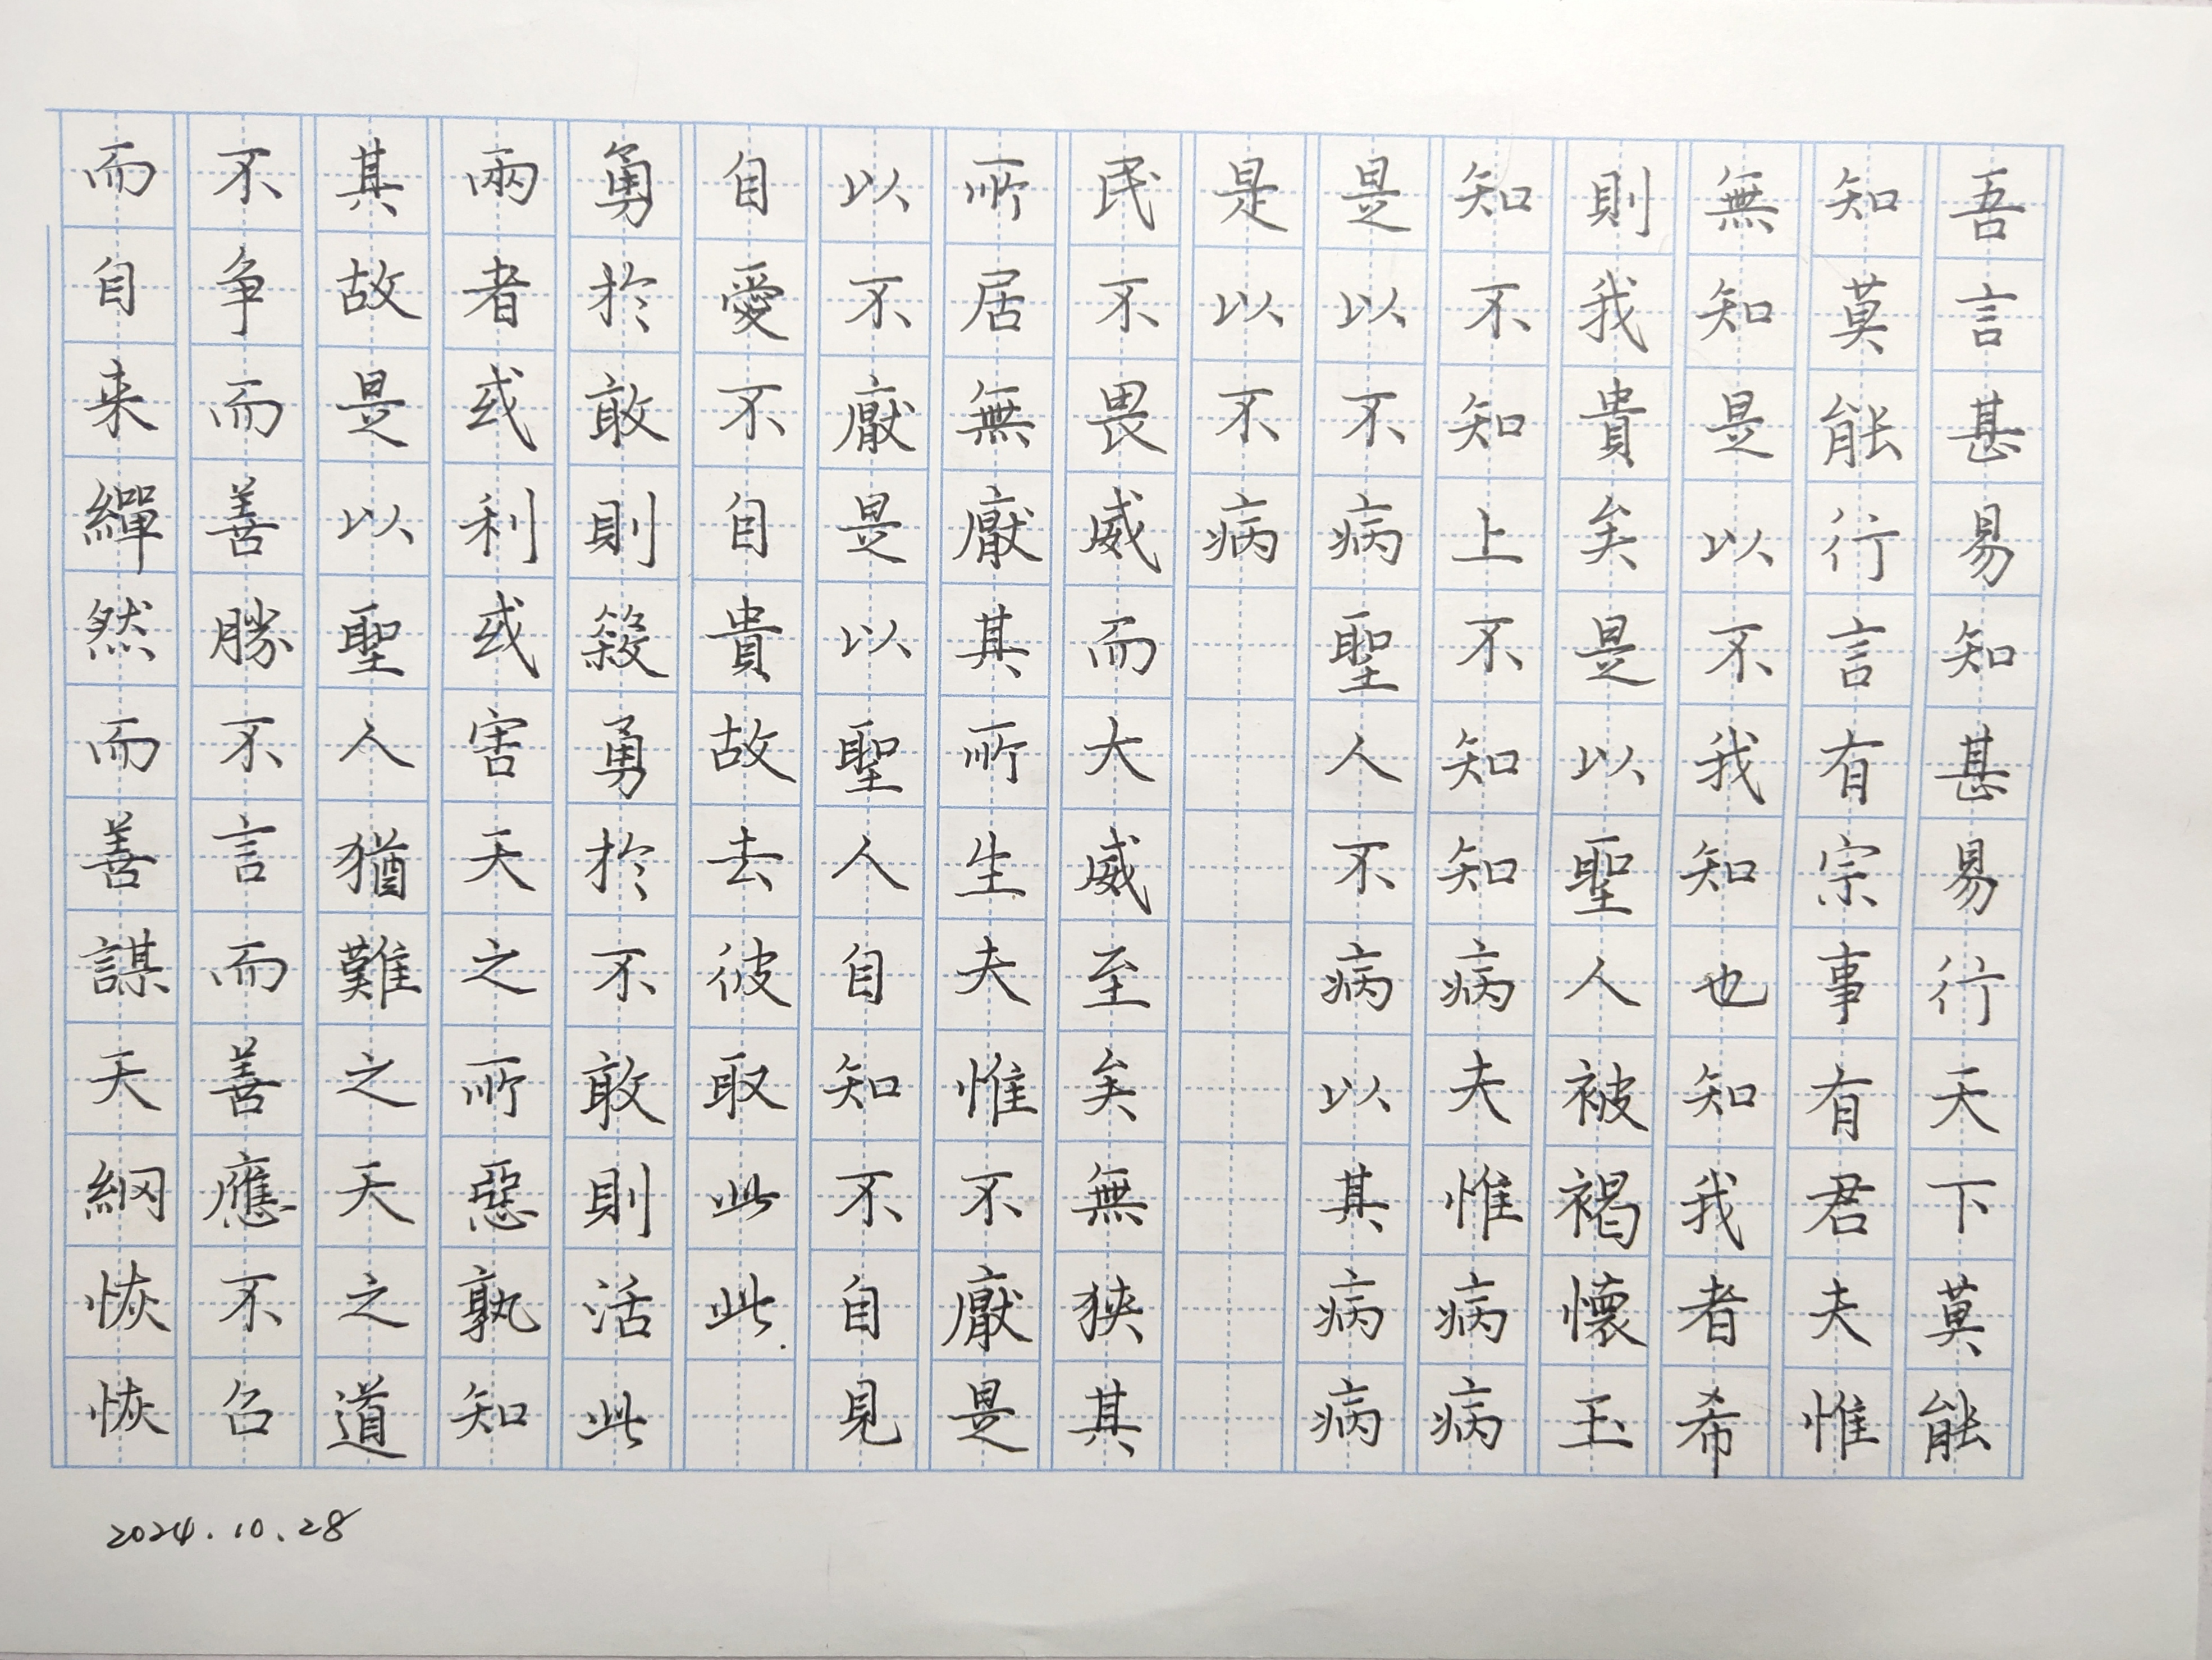 吾言甚易知甚易行天下莫能
知莫能行言有宗事有君夫惟
無知是以不我知也知我者希
則我貴矣是以聖人被褐懷玉
知不知上不知知病夫惟病病
是以不病聖人不病以其病病
是以不病
民不畏威而大威至矣無狹其
所居無厭其所生夫惟不厭是
以不厭是以聖人自知不自見
自愛不自貴故去彼取此此
勇於敢則殺勇於不敢則活此
兩者或利或害天之所惡孰知
其故是以聖人猶難之天之道
不争而善勝不言而善應不召
而自来繟然而善謀天網恢恢
2024.10.28